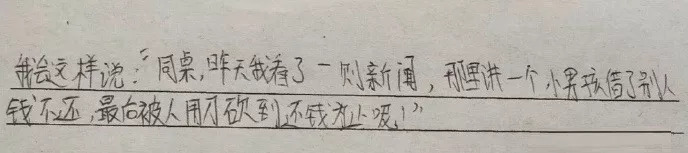 我会这样说：“同桌，昨天我看了一则新闻，那里讲一个小男孩借了别人
钱不还，最后被人用刀砍到还钱为止哎！”